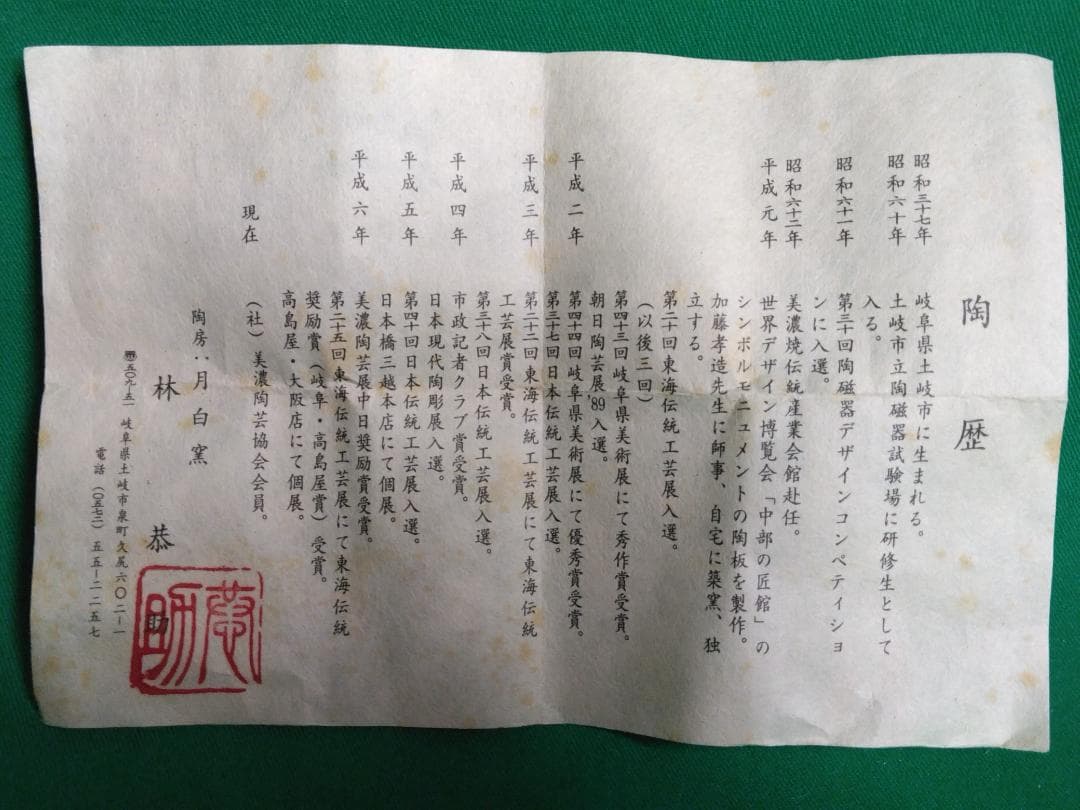 陶歴
昭和三十七年 岐阜県土岐市に生まれる。
昭和六十年 土岐市立陶磁器試験場に研修生として
入る。
昭和六十一年 第三十回陶磁器デザインコンペティショ
ンに入選。
昭和六十二年 美濃焼伝統産業会館赴任。
平成元年 世界デザイン博覧会「中部の匠館」の
シンボルモニュメントの陶板を製作。
加藤孝造先生に師事、自宅に築窯、独
立する。
第二十回東海伝統工芸展入選。
(以後三回)
第四十三回岐阜県美術展にて秀作賞受賞。
朝日陶芸展'89入選。
平成二年 第四十四回岐阜県美術展にて優秀賞受賞。
第三十七回日本伝統工芸展入選。
平成三年 第二十二回東海伝統工芸展にて東海伝統
工芸展賞受賞。
第三十八回日本伝統工芸展入選。
平成四年 市政記者クラブ賞受賞。
日本現代陶彫展入選。
平成五年 第四十回日本伝統工芸展入選。
日本橋三越本店にて個展。
平成六年 美濃陶芸展中日奨励賞受賞。
第二十五回東海伝統工芸展にて東海伝統
奨励賞(岐阜・高島屋賞)受賞。
高島屋・大阪店にて個展。
現在 (社)美濃陶芸協会会員。
陶房:月白窯
林恭助
〒五〇九-五一 岐阜県土岐市泉町久尻六〇二-一
電話(〇五七二)五五-二二五七
恭助